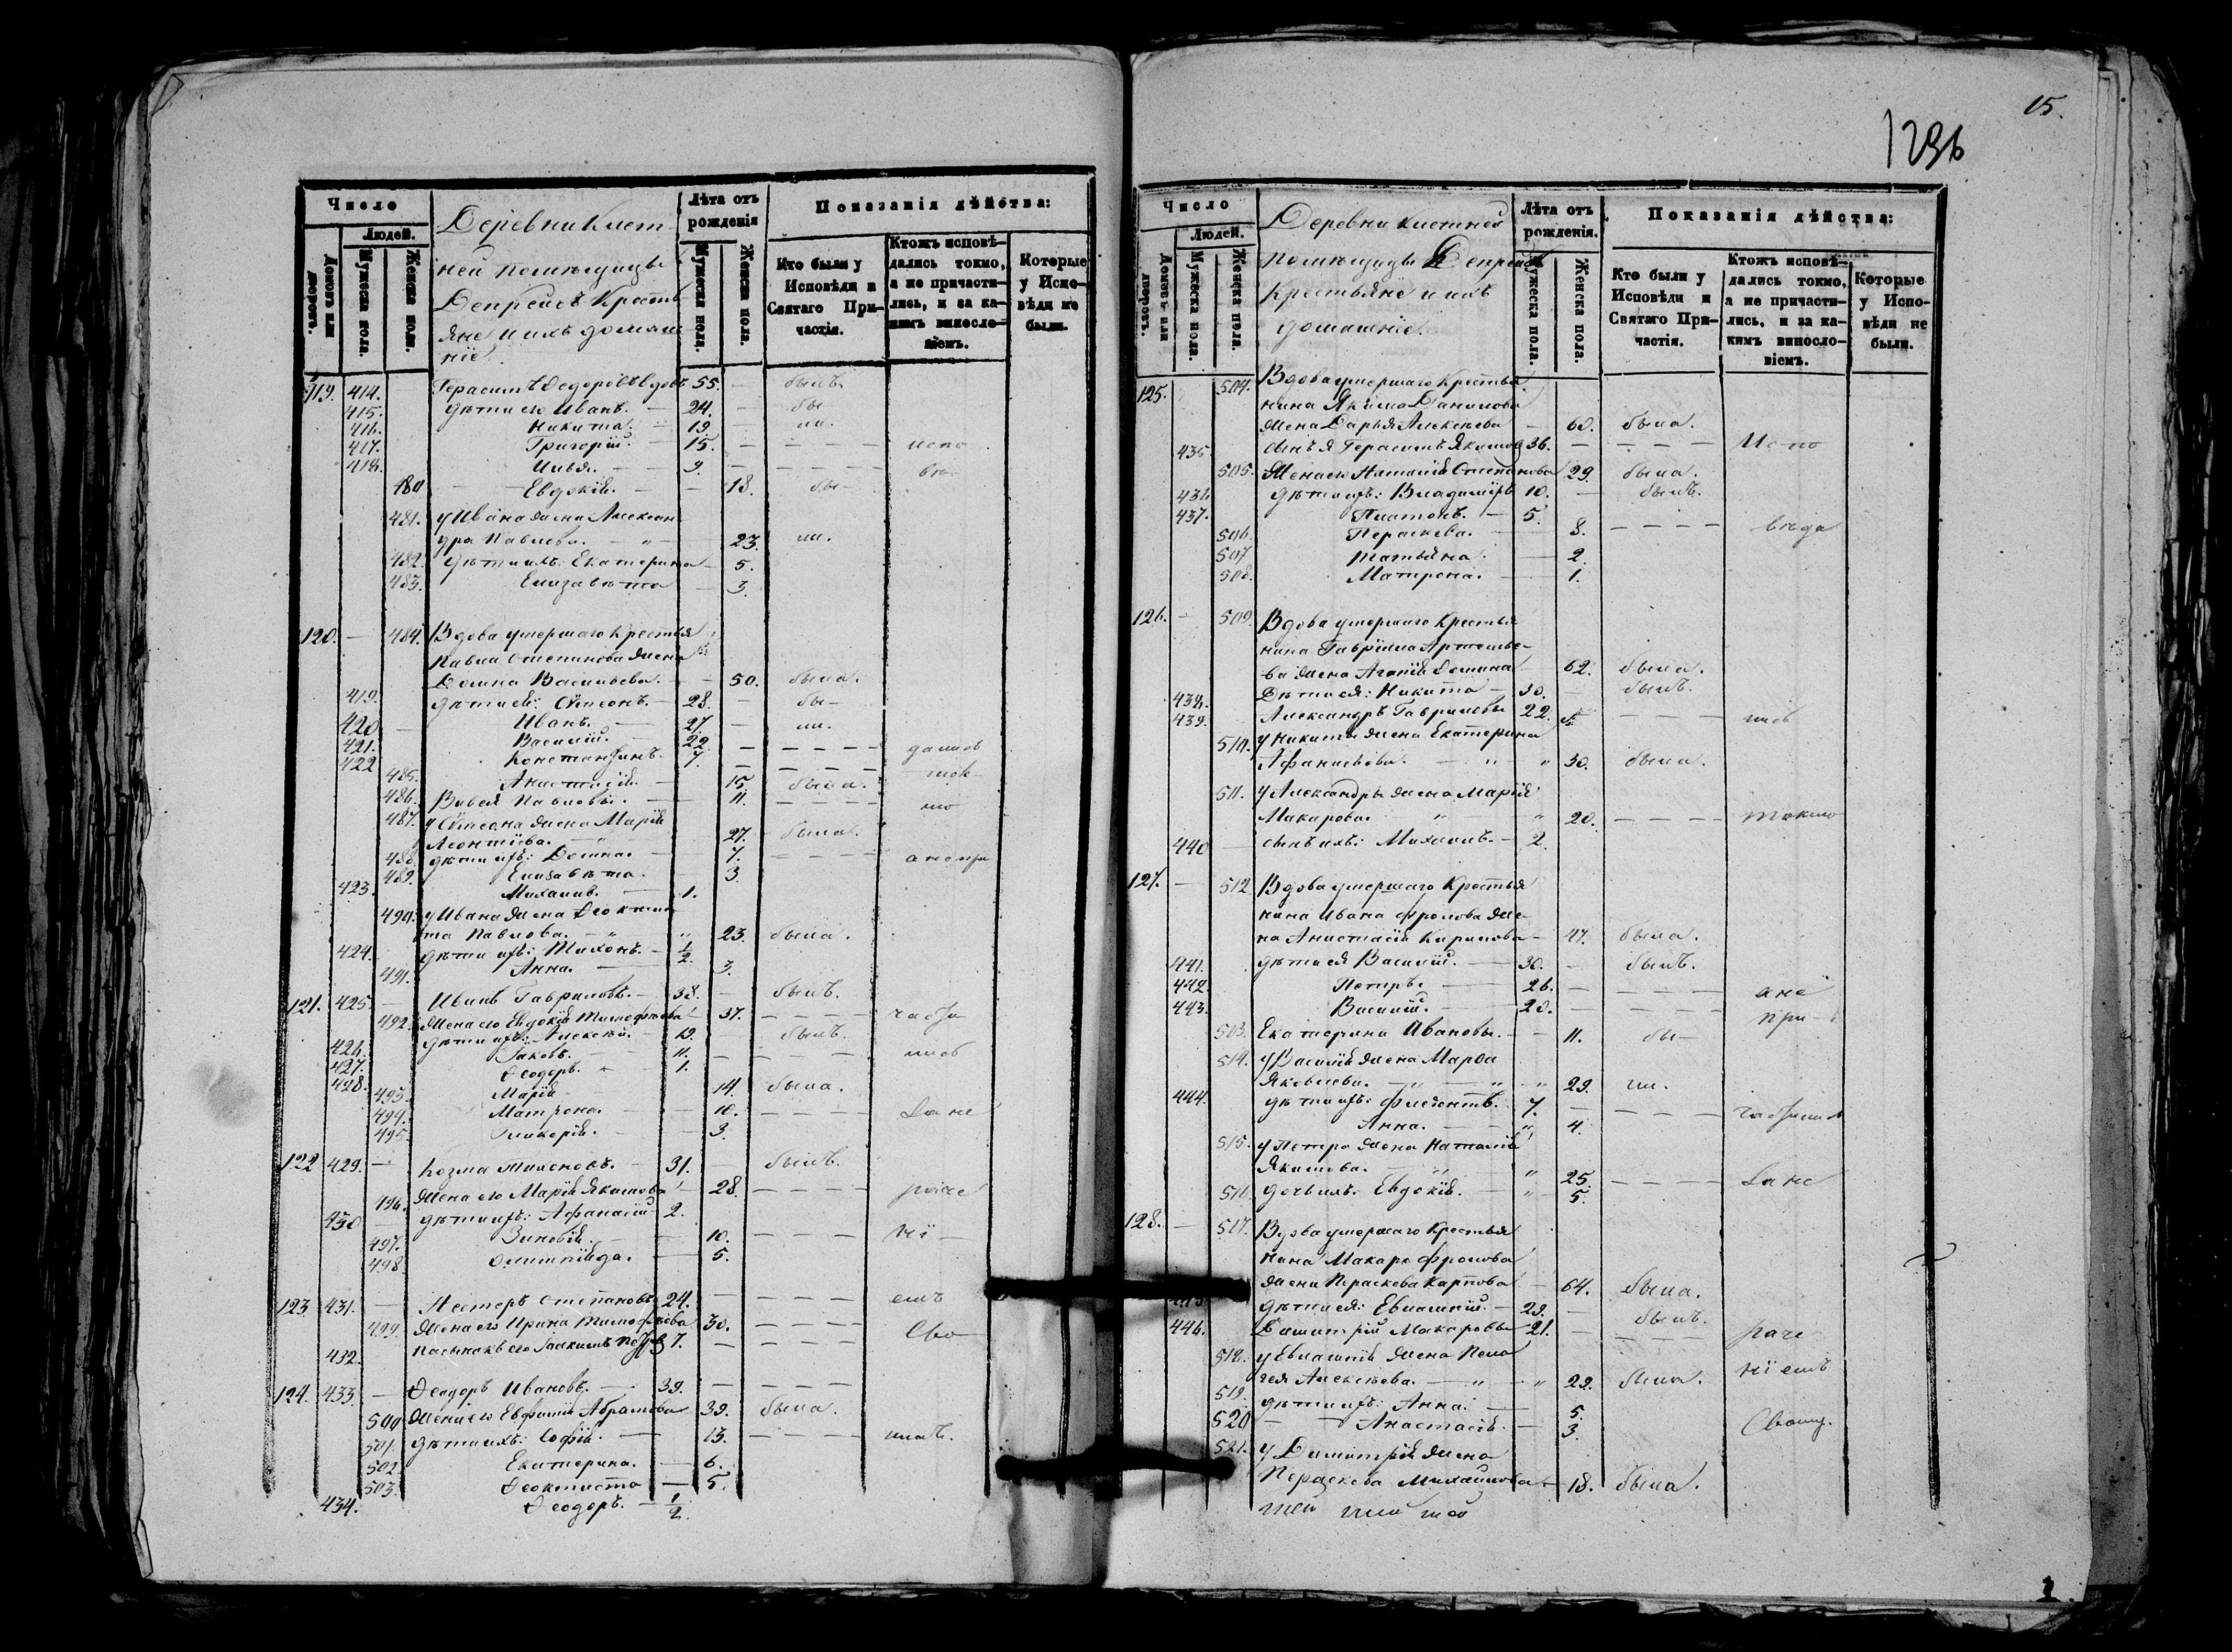 Число
Людей.
Домовъ или дворовъ.
Мужеска пола.
Женска пола.
Деревни Кист
ней помѣщицы
Депрейсъ Кресть
яне и ихъ домаш
ніе.
Лѣта отъ рожденія
Мужеска пола.
Женска пола.
Показанія дѣйства:
Кто были у Исповѣди и Святаго Причастія.
Ктожъ исповѣдались токмо, а не причастились, и за какимъ винословіемъ.
Которые у Исповѣди не были.
119. 414. Герасимъ Ѳедоровъ вдовъ 55. — былъ.
415. дѣти его Иванъ. — 24. — бы—
416. Никита. — 19 — ли.
417. Григорій. — 15. — — — — испо
418. Илья. — 9. — — — — вѣ—
480 Евдокія. — 18. бы—
481. у Ивана жена Алексан
дра Павлова. — „ — 23. ли.
482. дѣти ихъ: Екатерина — 5.
483. Елизавѣта — 3.
120. — 484. Вдова умершаго Крестья
Павла Степанова жена
Домна Васильева. — 50. была.
419. дѣти ея: Сѷмеонъ. — 28. — бы—
420 Иванъ. — 27. — ли.
421. Василій. — 22. — — — — дались
422 Константинъ. 7. — — — — ток—
485. Анастасія. — 15. была.
486. Вивея Павловы. — 11. — — — — мо
487. у Сѷмеона жена Марія
Леонтіева. 27. была.
488 дѣти ихъ: Домна. — 7. — — — — а непри
489. Елизавѣта. 3.
423. Михаилъ. — 1.
490. у Ивана жена Ѳеокти
ста Павлова. — „ „ 23. была.
424. дѣти ихъ: Тихонъ. — 1/2.
491. Анна. — 3.
121. 425 — Иванъ Гавриловъ. — 38. — былъ.
492. Жена его Евдокія Тимоѳеева 37. — — — — части
426. дѣти ихъ: Алексѣй. — 13. — былъ.
427. Іаковъ. — 11. — — — — лись
428. Ѳеодоръ. — 1.
493. Марія 14. была.
494. Матрона. — 10. — — — — За не
495. Гликерія. — 3.
122 429. — Козма Тихоновъ. — 31. — былъ.
496. Жена его Марія Якимова 28. — — — — раче
430 дѣти ихъ: Аѳанасій 2.
497. Зиновія. — 10. — — — ні—
498. Олимпіада. — 5.
123 431. — Нестеръ Степановъ 24. — — — — емъ
499. Жена его Ирина Тимоѳеева 30. — — — — Сво
432. пасынокъ его Іоакимъ 7. — — —
124. 433. — Ѳеодоръ Ивановъ. — 39. — — — —
500 Жена его Евфимія Абрамова 39. была.
501. дѣти ихъ: Софія. — 13. — — — —
502 Екатерина. — 6.
503. Ѳеоктиста — 5.
434. Ѳеодоръ. — 1/2.
15.
1296
Число
Людей.
Домовъ или дворовъ.
Мужеска пола.
Женска пола.
Деревни Кистней
помѣщицы Депрейсъ
Крестьяне и ихъ
домашніе.
Лѣта отъ рожденія.
Мужеска пола.
Женска пола.
Показанія дѣйства:
Кто были у Исповѣди и Святаго Причастія.
Ктожъ исповѣдались токмо, а не причастились, и за какимъ винословіемъ.
Которые у Исповѣди не были.
125. 504. Вдова умершаго Крестья
нина Якима Данилова
жена Дарья Алексѣева — 60. была.
435 сынъ ея Герасимъ Якимовъ 36. — — — — Испо
505. Жена его Наталія Степанова 29. была.
436. дѣти ихъ: Владиміръ 10. — былъ.
437. Платонъ. — 5.
506. Пераскева. 8. — — — — вѣда
507 Татьяна. 2.
508. Матрона. 1.
126. — 509. Вдова умершаго Крестья
нина Гавріила Артемье
ва жена Агапія Домина 62. была.
438. Дѣти ея: Никита — 30. — былъ.
439. Александръ Гавриловы 22. — — — — лись
510. у Никиты жена Екатерина
Аѳанасьева. — „ „ 30. была.
511. у Александры жена Марія
Макарова. „ „ 20. — — — — токмо
440 сынъ ихъ: Михаилъ. — 2.
127. — 512 Вдова умершаго Крестья
нина Ивана Фролова же
на Анастасія Кирилова — 47. была.
441. дѣти ея Василій. — 30. — былъ.
442. Петръ. — 26. — — — — а не
443. Василій. — 20. — — — — при—
513. Екатерина Ивановы. — 11. бы—
514. у Василія жена Марѳа
Яковлева. — „ — „ „ 29. ла.
444. дѣти ихъ: 7. — — — —
Анна. — „ 4.
515. у Петра жена Наталія
Якимова. „ „ 25. — — — — За не
516. дочь ихъ: Евдокія. — „ 5.
128. — 517. Вдова умершаго Крестья
нина Макара Фролова
жена Пераскева Карпова — 64. была.
дѣти ея: Евлампій. — 29. — былъ.
446. Димитрій Макаровы 21. — — — — раче
518. у Евлампія жена Пела
гея Алексѣева. — „ — „ 22. была. ніемъ
519. дѣти ихъ: Анна. — 5.
520 — Анастасія. — 3. Своим.
521. у Димитрія жена
Пераскева Михайлова — 18. была.